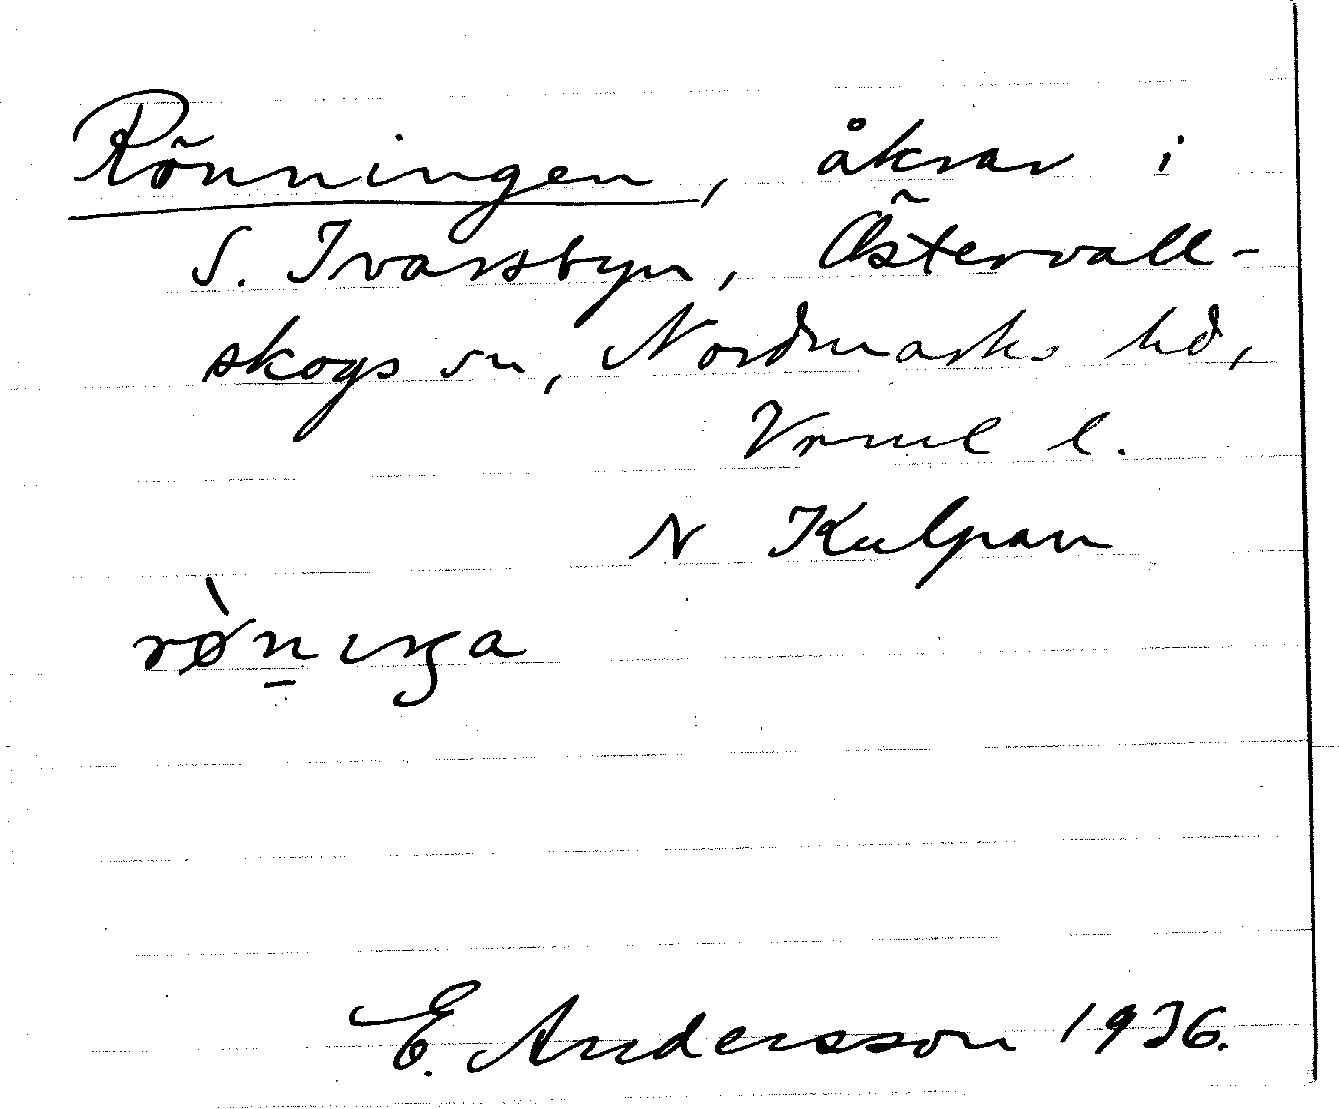 Rönningen, åkrar i
S. Ivarsbyn, Östervall-
skogs sn, Nordmarks hd,
Vrml l.
N Kulpan
rø̀n̲ıŋa
E. Andersson 1936.